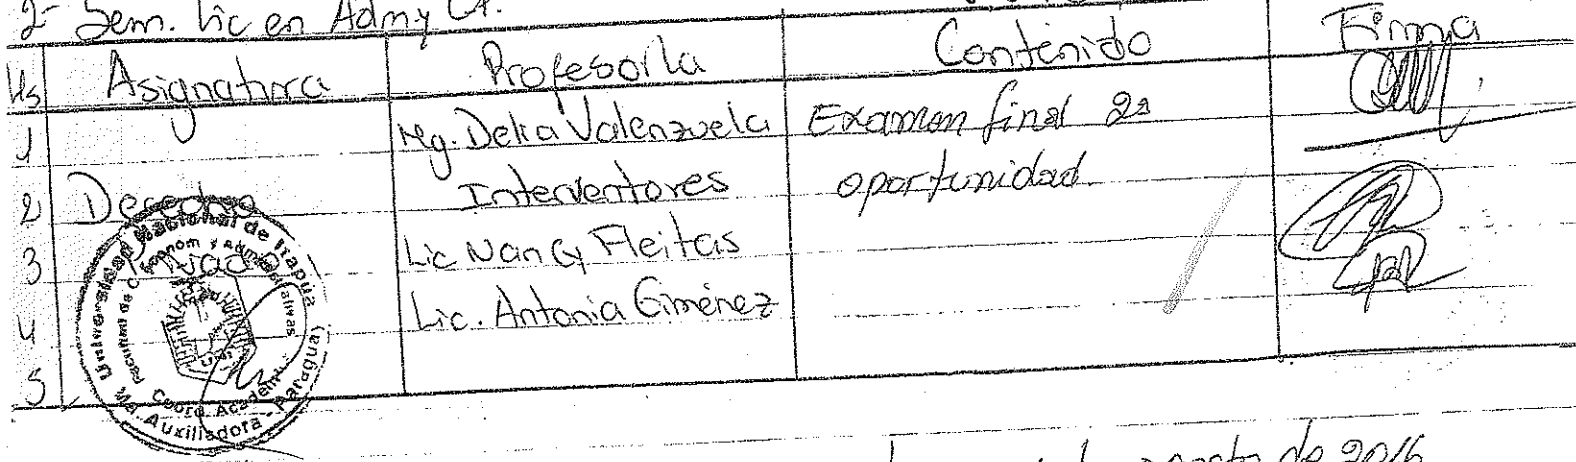 2º Sem. Lic en Adm y CP.
Hs Asignatura Profesor/a Contenido Firma
1 Mg. Delia Valenzuela Examen final 2ª
2 Derecho Interventores oportunidad.
3 Privado Lic Nancy Fleitas
4 Lic. Antonia Giménez
5
Universidad Nacional de Itapúa
Facultad de Cs. Econom y administrativas
Coord. Academ.
Ma. Auxiliadora - Paraguay
agosto de 2016